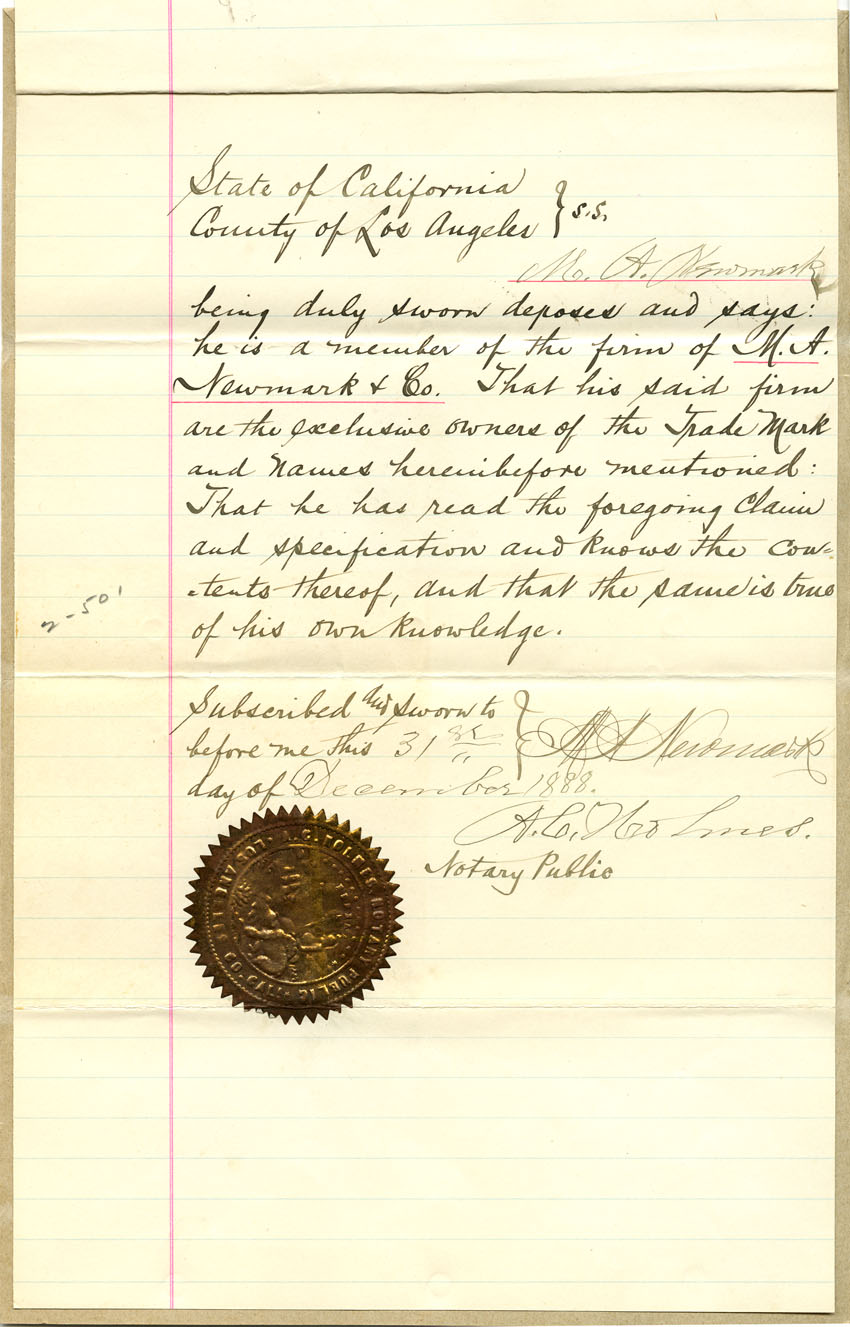 State of California
County of Los Angeles } s.s.
M. A. Newmark
being duly sworn deposes and says:
he is a member of the firm of M. A.
Newmark & Co. That his said firm
are the exclusive owners of the Trade Mark
and names hereinbefore mentioned:
That he has read the foregoing Claim
and specification and knows the con-
-tents thereof, and that the same is true
of his own knowledge.
Subscribed and sworn to
before me this 31st } M A Newmark
day of December 1888.
A. C. Holmes.
Notary Public
A. C. HOLMES. NOTARY PUBLIC LOS ANGELES CO. CAL.